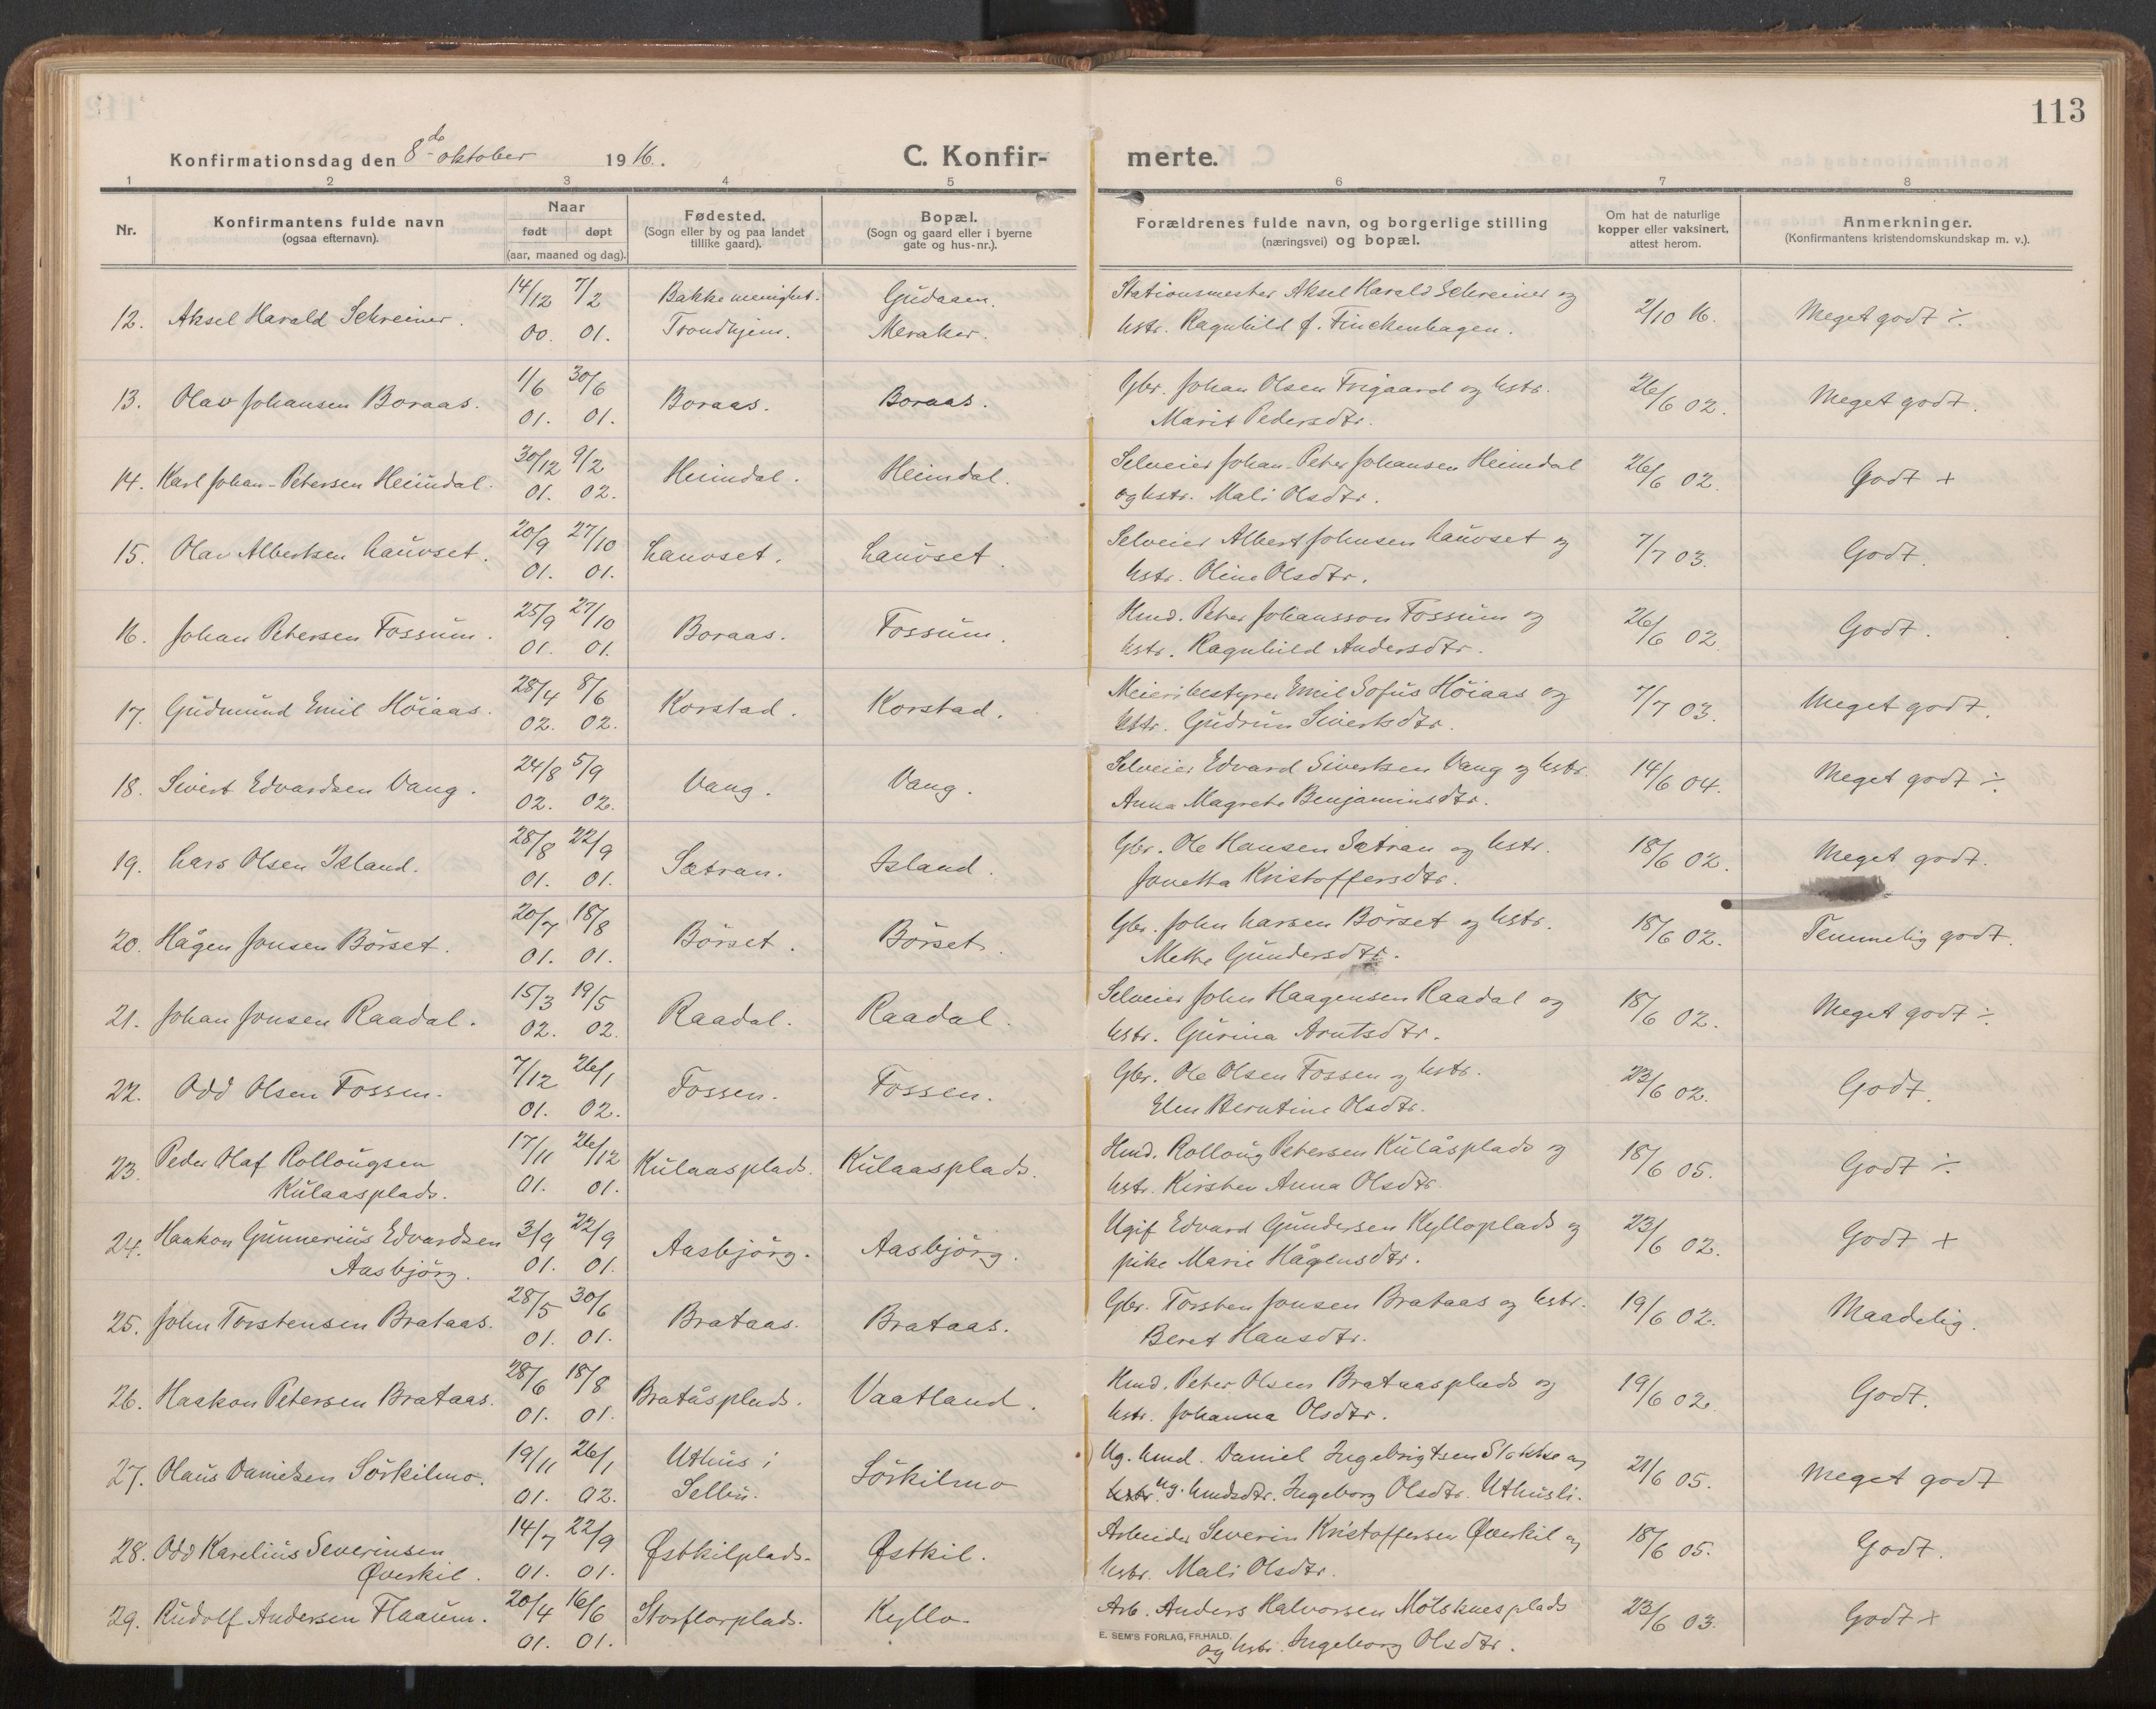 113
Konfirmationsdag den 8de oktober 1916.
C. Konfirmerte.
1 2 3 4 5 6 7 8
Nr. Konfirmantens fulde navn (ogsaa efternavn). Naar født døpt (aar, maaned og dag). Fødested. (Sogn eller by og paa landet tillike gaard). Bopæl. (Sogn og gaard eller i byerne gate og hus-nr.). Forældrenes fulde navn, og borgerlige stilling (næringsvei) og bopæl. Om hat de naturlige kopper eller vaksinert, attest herom. Anmerkninger. (Konfirmantens kristendomskundskap m. v.).
14/12 7/2 Bakke menighet. Gudaaen. Stationsmester Aksel Harald Schreiner og
12. Aksel Harald Schreiner. 00. 01. Trondhjem. Meraker. hstr. Ragnhild f. Finckenhagen. 2/10 16. Meget godt ÷.
1/6 30/6 Gbr. Johan Olsen Trigaard og hstr.
13. Olav Johansen Boraas. 01. 01. Boraas. Boraas. Marit Pedersdtr. 26/6 02. Meget godt.
30/12 9/2 Selveier Johan-Peter Johansen Heimdal
14. Karl Johan-Petersen Heimdal. 01. 02. Heimdal. Heimdal. og hstr. Mali Olsdtr. 26/6 02. Godt +
20/9 27/10 Selveier Albert Johnsen Lauvset og
15. Olav Albertsen Lauvset. 01. 01. Lauvset. Lauvset. hstr. Oline Olsdtr. 7/7 03. Godt.
25/9 27/10 Hmd. Peter Johansson Fossum og
16. Johan Petersen Fossum. 01. 01. Boraas. Fossum. hstr. Ragnhild Andersdtr. 26/6 02. Godt.
28/4 8/6 Meieribestyrer Emil Sofus Höiaas og
17. Gudmund Emil Höiaas. 02. 02. Korstad. Korstad. hstr. Gudrun Sivertsdtr. 7/7 03. Meget godt.
24/8 5/9 Selveier Edvard Sivertsen Vang og hstr.
18. Sivert Edvardsen Vang. 02. 02. Vang. Vang. Anna Magrete Benjaminsdtr. 14/6 04. Meget godt ÷.
28/8 22/9 Gbr. Ole Hansen Sætran og hstr.
19. Lars Olsen Island. 01. 01. Sætran. Island. Jonetta Kristoffersdtr. 18/6 02. Meget godt.
20/7 18/8 Gbr. John Larsen Börset og hstr.
20. Hågen Jonsen Börset. 01. 01. Börset. Börset. Methe Gundersdtr. 18/6 02. Temmelig godt.
15/3 19/5 Selveier John Haagensen Raadal og
21. Johan Jonsen Raadal. 02. 02. Raadal. Raadal. hstr. Gurina Arntsdtr. 18/6 02. Meget godt ÷.
7/12 26/1 Gbr. Ole Olsen Fossen og hstr.
22. Odd Olsen Fossen. 01. 02. Fossen. Fossen. Elen Berntine Olsdtr. 23/6 02. Godt.
23. Peder Olaf Rollougsen 17/11 26/12 Kulaasplads. Kulaasplads. Hmd. Rolloug Petersen Kulåsplads og
Kulaasplads. 01. 01. hstr. Kirsten Anna Olsdtr. 18/6 05. Godt ÷
24. Haakon Gunnerius Edvardsen 3/9 22/9 Aasbjörg. Aasbjörg. Ugif Edvard Gundersen Kylloplads og
Aasbjörg. 01. 01. pike Marie Hågensdtr. 23/6 02. Godt +
28/5 30/6 Gbr. Torsten Jonsen Brataas og hstr.
25. John Torstensen Brataas. 01. 01. Brataas. Brataas. Beret Hansdtr. 19/6 02. Maadelig.
28/6 18/8 Hmd. Peter Olsen Brataasplads og
26. Haakon Petersen Brataas. 01. 01. Bratåsplads. Vaatland. hstr. Johanna Olsdtr. 19/6 02. Godt.
19/11 26/1 Uthus i Ug. hmd. Daniel Ingebrigtsen Slokke og
27. Olaus Danielsen Sörkilmo. 01. 02. Selbu. Sörkilmo hstr. ug. hmdsdtr. Ingeborg Olsdtr. Uthusli. 21/6 05. Meget godt
28. Odd Karelius Severinsen 14/7 22/9 Østkilplads. Østkil. Arbeider Severin Kristoffersen Øverkil og
Øverkil. 01. 01. hstr. Mali Olsdtr. 18/6 05. Godt.
29. Rudolf Andersen Flaaum. 20/4 16/6 Storflorplads. Kyllo. Arb. Anders Halvorsen Mölsknesplads 23/6 03. Godt +
01. 01. og hstr. Ingeborg Olsdtr.
E. SEM'S FORLAG, FR.HALD.